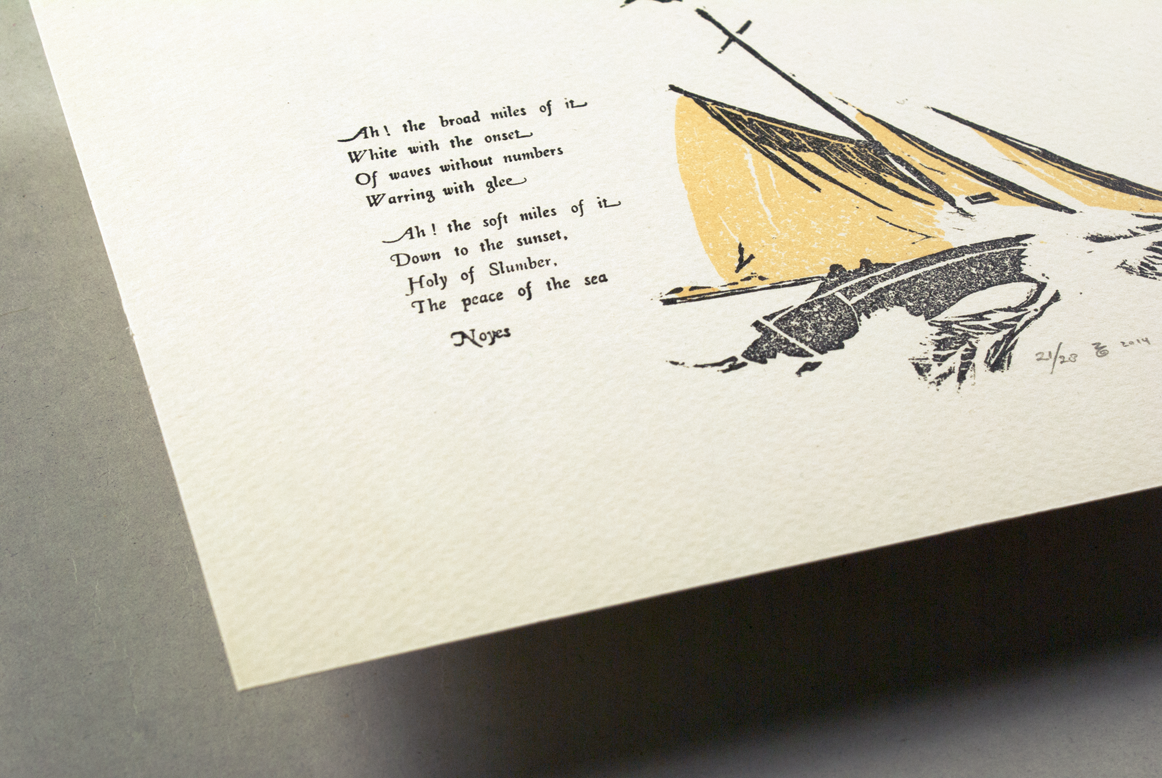 Ah! the broad miles of it
White with the onset
Of waves without numbers
Warring with glee
Ah! the soft miles of it
Down to the sunset,
Holy of Slumber,
The peace of the sea
Noyes
21/28 2014